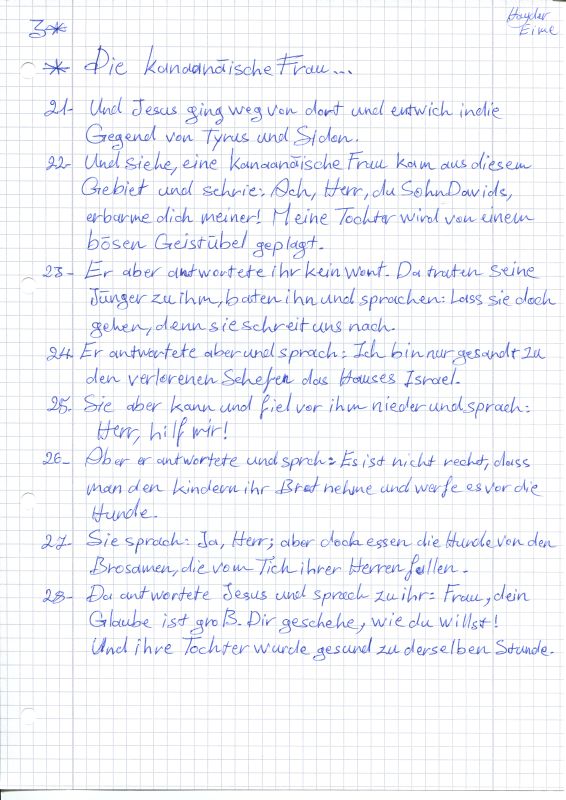 3*
Hayder
Eime
* Die kanaanäische Frau...
21- Und Jesus ging weg von dort und entwich indie
Gegend von Tyrus und Sidon.
22- Und siehe, eine kanaanäische Frau kam aus diesem
Gebiet und schrie: Ach, Herr, du Sohn Davids,
erbarme dich meiner! Meine Tochter wird von einem
bösen Geist übel geplagt.
23- Er aber antwortete ihr kein Wont. Da traten seine
Jünger zu ihm, baten ihn und sprachen: Lass sie doch
gehen, denn sie schreit uns nach.
24. Er antwortete aber und sprach: Ich bin nur gesandt zu
den verlorenen Schefen das Hauses Israel.
25. Sie aber kann und fiel vor ihm nieder und sprach:
Herr, hilf mir!
26- Aber er antwortete und sprch: Es ist nicht recht, dass
man den kindern ihr Brot nehme und werfe es vor die
Hunde.
27- Sie sprach: Ja, Herr; aber doch essen die Hunde von den
Brosamen, die vom Tich ihrer Herren fallen.
28- Da antwortete Jesus und sprach zu ihr: Frau, dein
Glaube ist groß. Dir geschehe, wie du willst!
Und ihre Tochter wurde gesund zu derselben Stunde.